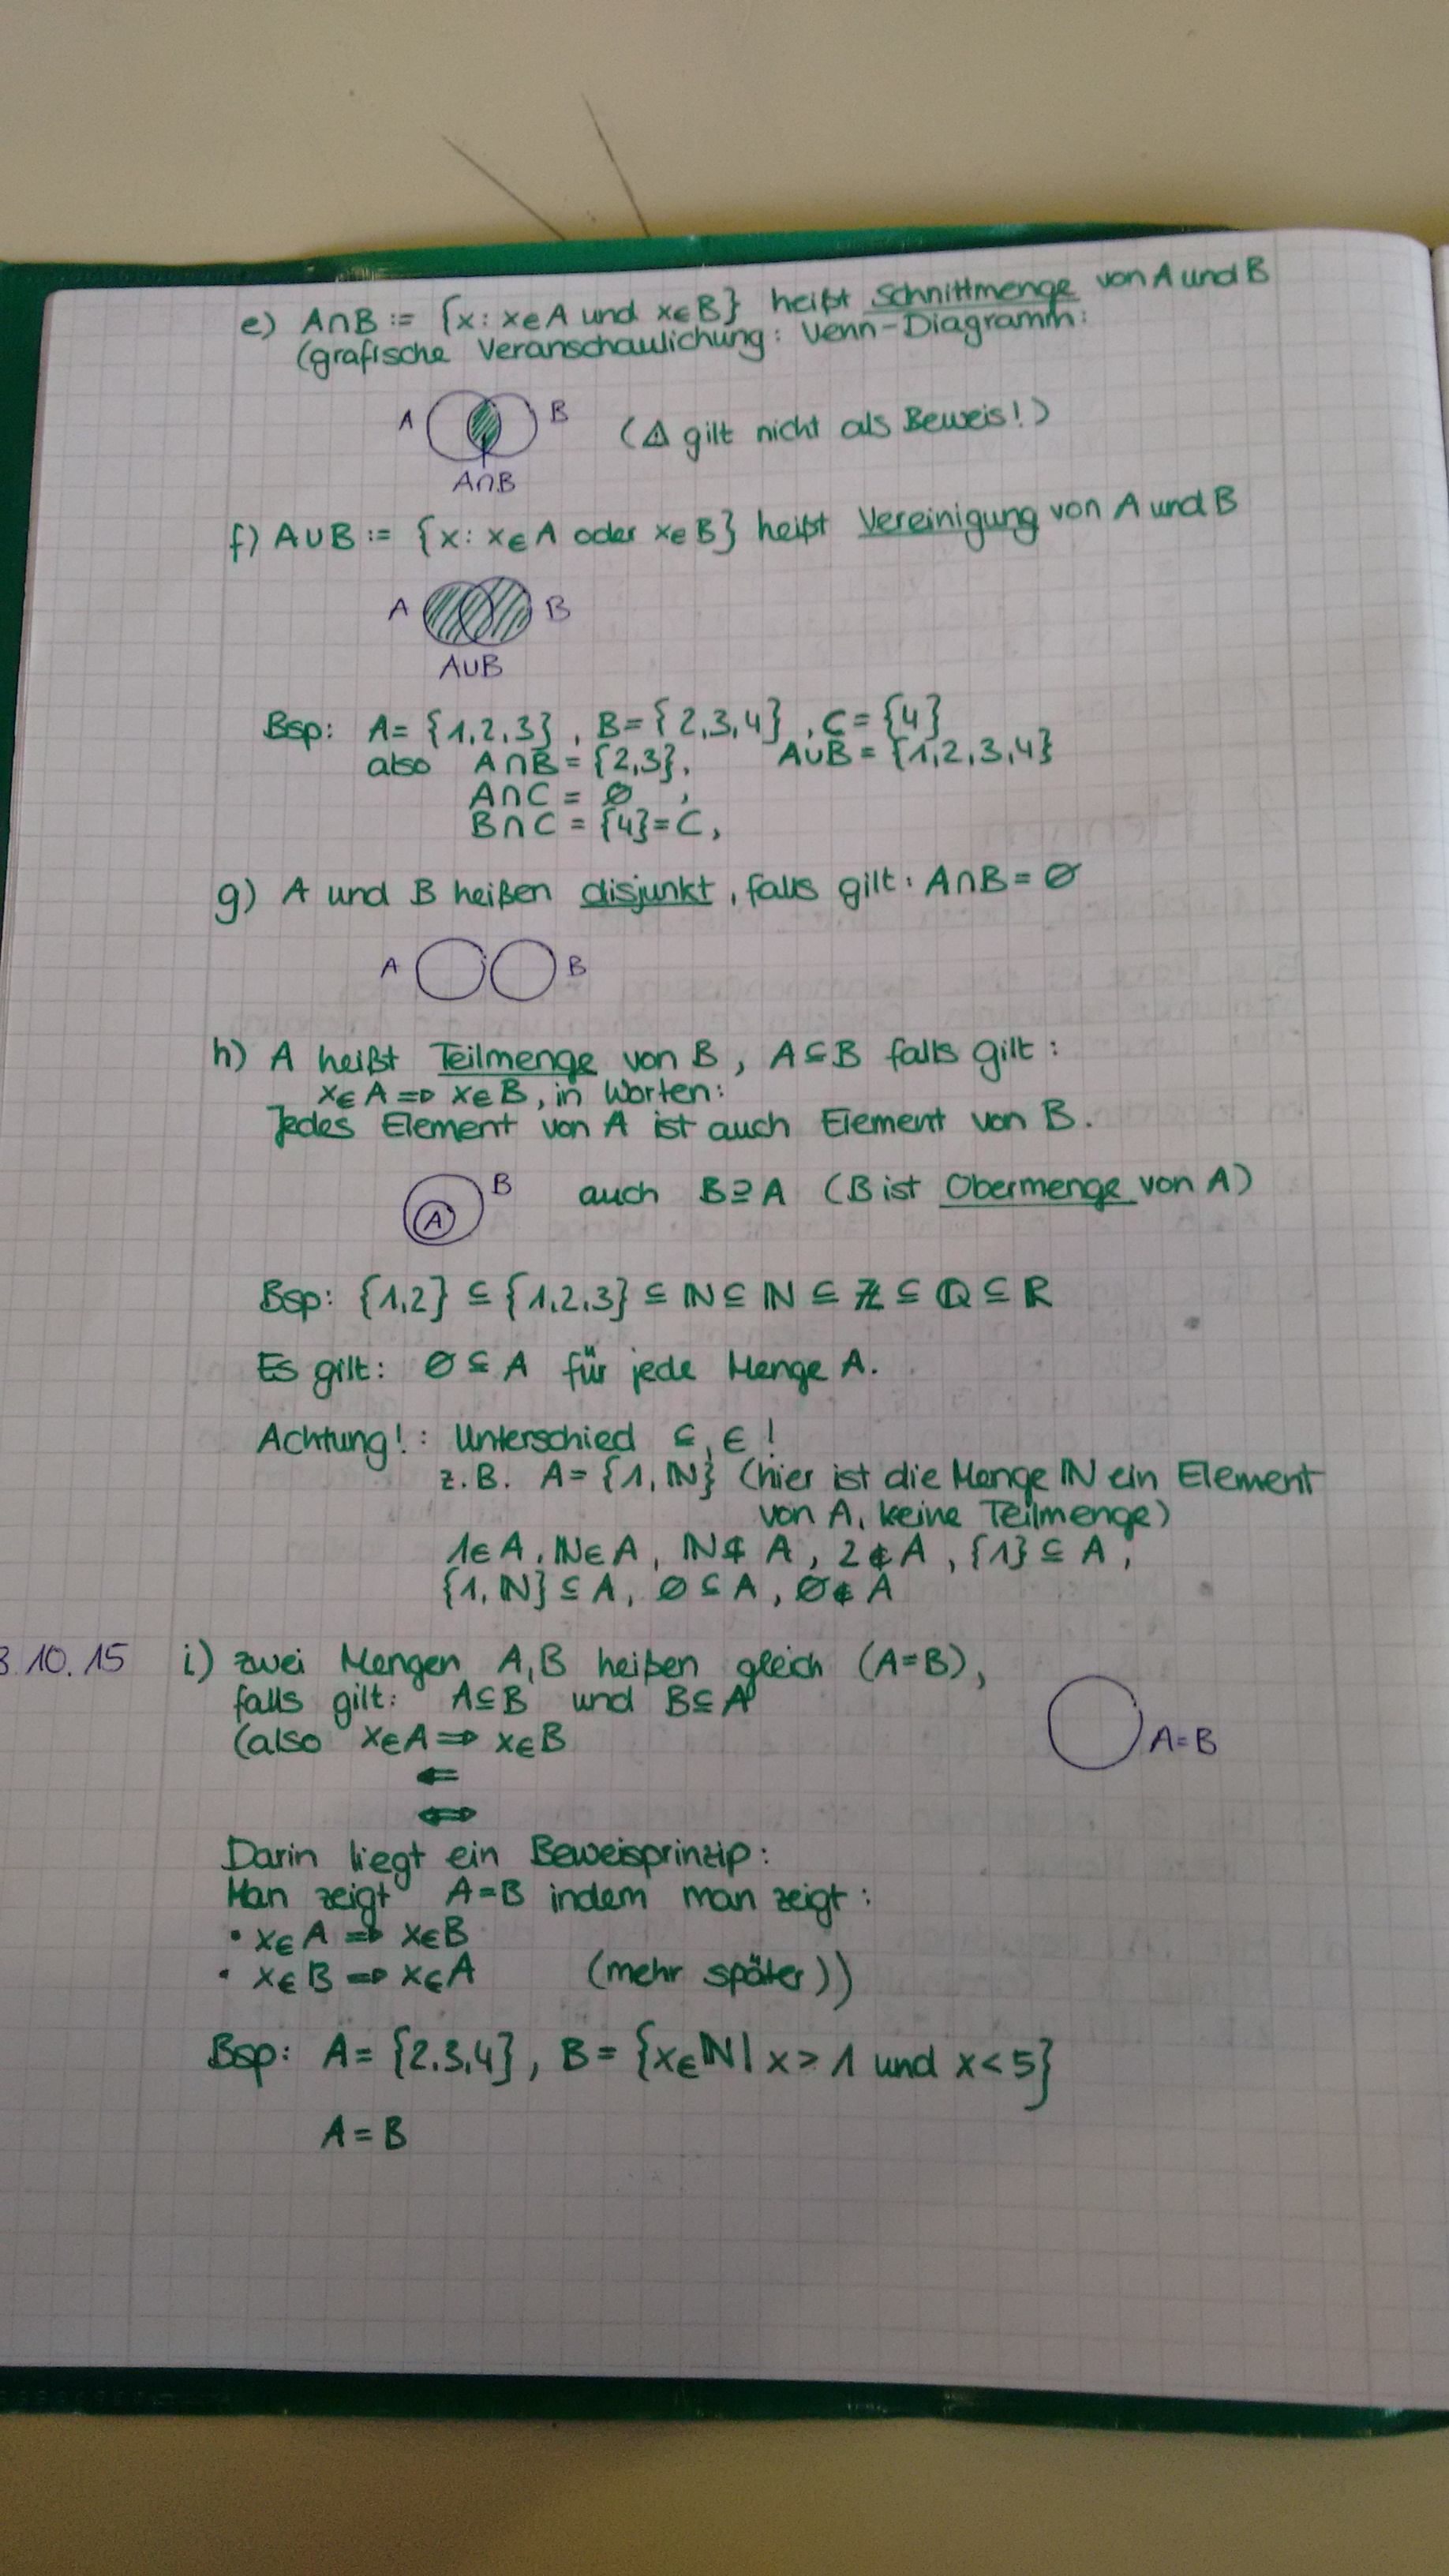 e) A∩B := {x : x∈A und x∈B} heißt Schnittmenge von A und B
(grafische Veranschaulichung: Venn-Diagramm:
A B (⚠ gilt nicht als Beweis!)
A∩B
f) A∪B := {x : x∈A oder x∈B} heißt Vereinigung von A und B
A B
A∪B
Bsp: A = {1,2,3}, B = {2,3,4}, C = {4}
also A∩B = {2,3}, A∪B = {1,2,3,4}
A∩C = ∅ ,
B∩C = {4} = C,
g) A und B heißen disjunkt, falls gilt: A∩B = ∅
A B
h) A heißt Teilmenge von B, A⊆B falls gilt:
x∈A ⇒ x∈B, in Worten:
Jedes Element von A ist auch Element von B.
A B auch B⊇A (B ist Obermenge von A)
Bsp: {1,2} ⊆ {1,2,3} ⊆ ℕ ⊆ ℕ ⊆ ℤ ⊆ ℚ ⊆ ℝ
Es gilt: ∅ ⊆ A für jede Menge A.
Achtung!: Unterschied ⊆, ∈ !
z.B. A = {1, ℕ} (hier ist die Menge ℕ ein Element
von A, keine Teilmenge)
1∈A, ℕ∈A, ℕ⊈A, 2∉A, {1}⊆A,
{1, ℕ}⊆A, ∅⊆A, ∅∉A
3.10.15 i) zwei Mengen A,B heißen gleich (A=B),
falls gilt: A⊆B und B⊆A
(also x∈A ⇒ x∈B A=B
⇐
⇔
Darin liegt ein Beweisprinzip:
Man zeigt A=B indem man zeigt:
• x∈A ⇒ x∈B
• x∈B ⇒ x∈A (mehr später))
Bsp: A = {2,3,4}, B = {x∈ℕ | x > 1 und x < 5}
A = B